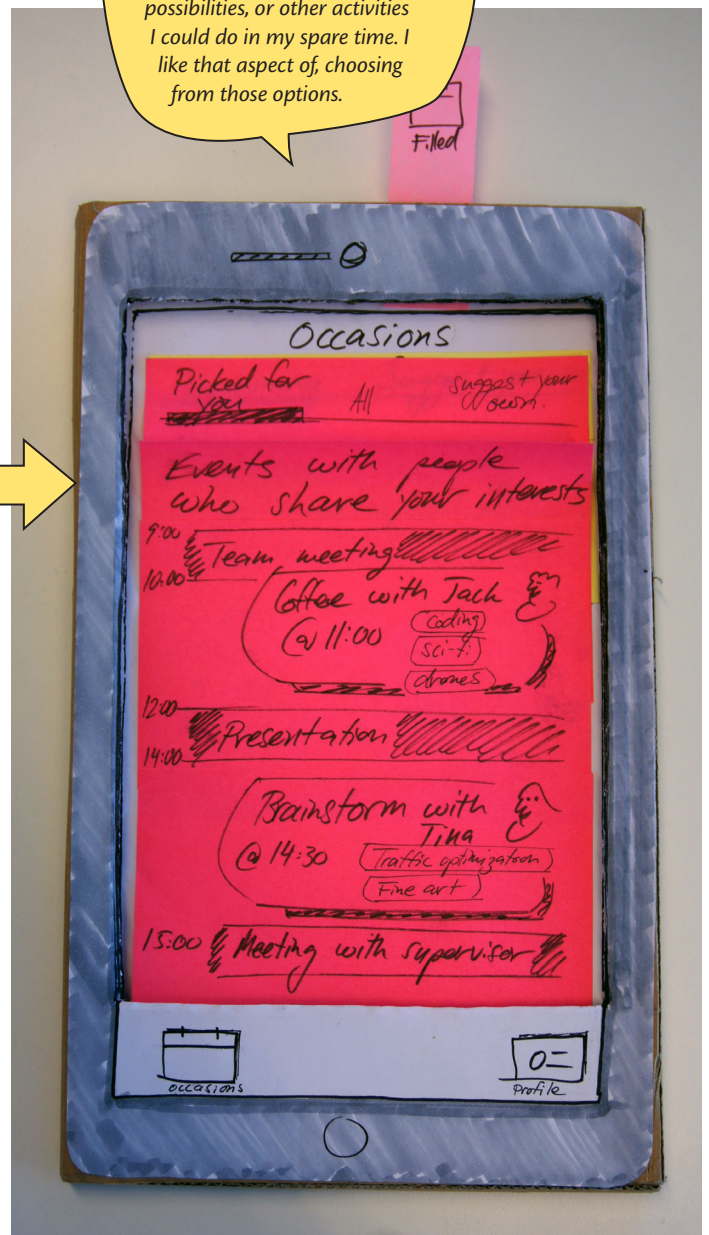 possibilities, or other activities
I could do in my spare time. I
like that aspect of, choosing
from those options.
Filled
Occasions
Picked for
you
All
suggest your
own.
Events with people
who share your interests
9:00
Team meeting
10:00
Coffee with Jack
@ 11:00
coding
sci-fi
drones
12:00
Presentation
14:00
Brainstorm with
Tina
@ 14:30
Traffic optimization
Fine art
15:00 Meeting with supervisor
occasions
Profile